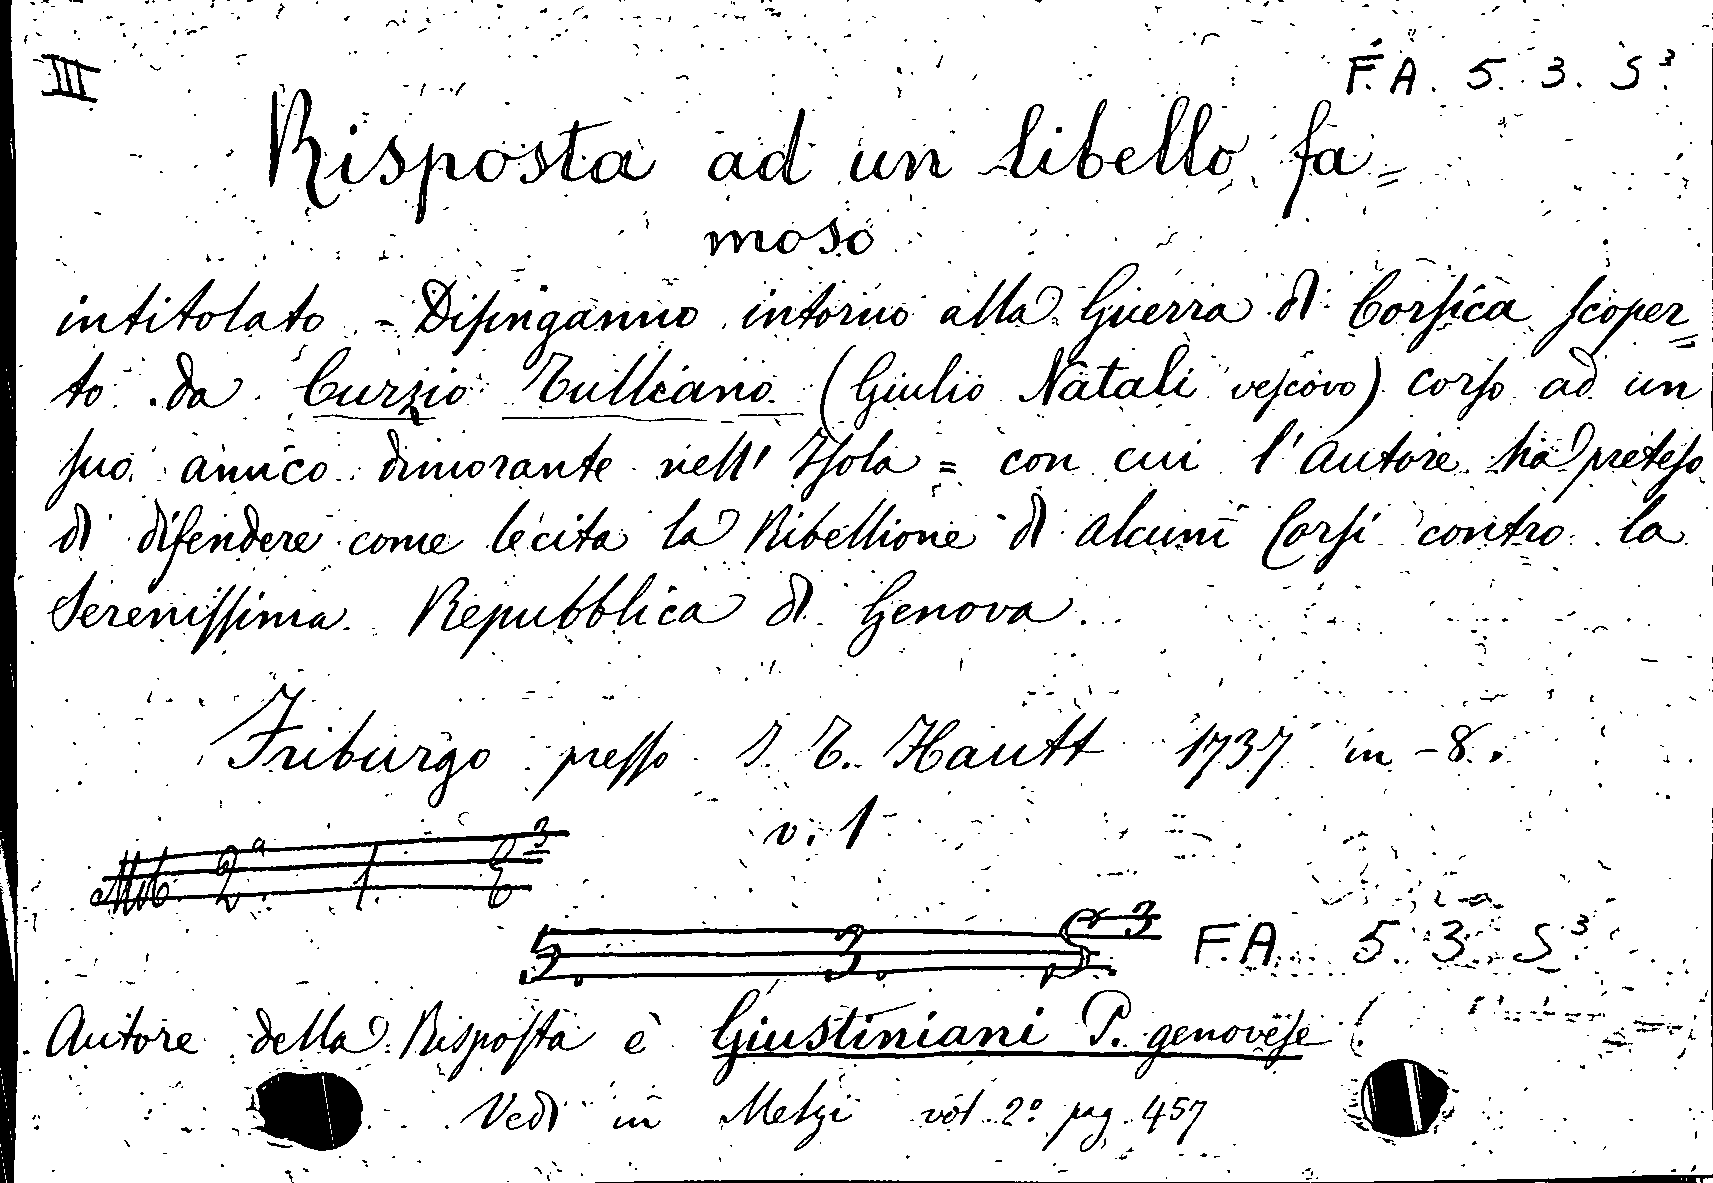 III
F.A. 5. 3. S³.
Risposta ad un libello fa=
moso
intitolato - Disinganno intorno alla Guerra di Corsica scoper=
to da Curzio Tulliano (Giulio Natali vescovo) corso ad un
suo amico dimorante nell' Isola = con cui l'autore ha preteso
di difendere come lecita la Ribellione di alcuni Corsi contro la
Serenissima Repubblica di Genova.
Friburgo presso I. T. Hautt 1737 in -8.
v. 1
2ª 1. E³
5. 3. S. 3 F.A. 5. 3. S³.
Autore della Risposta è Giustiniani P. genovese (
Vedi in Melzi vol 2º pag. 457